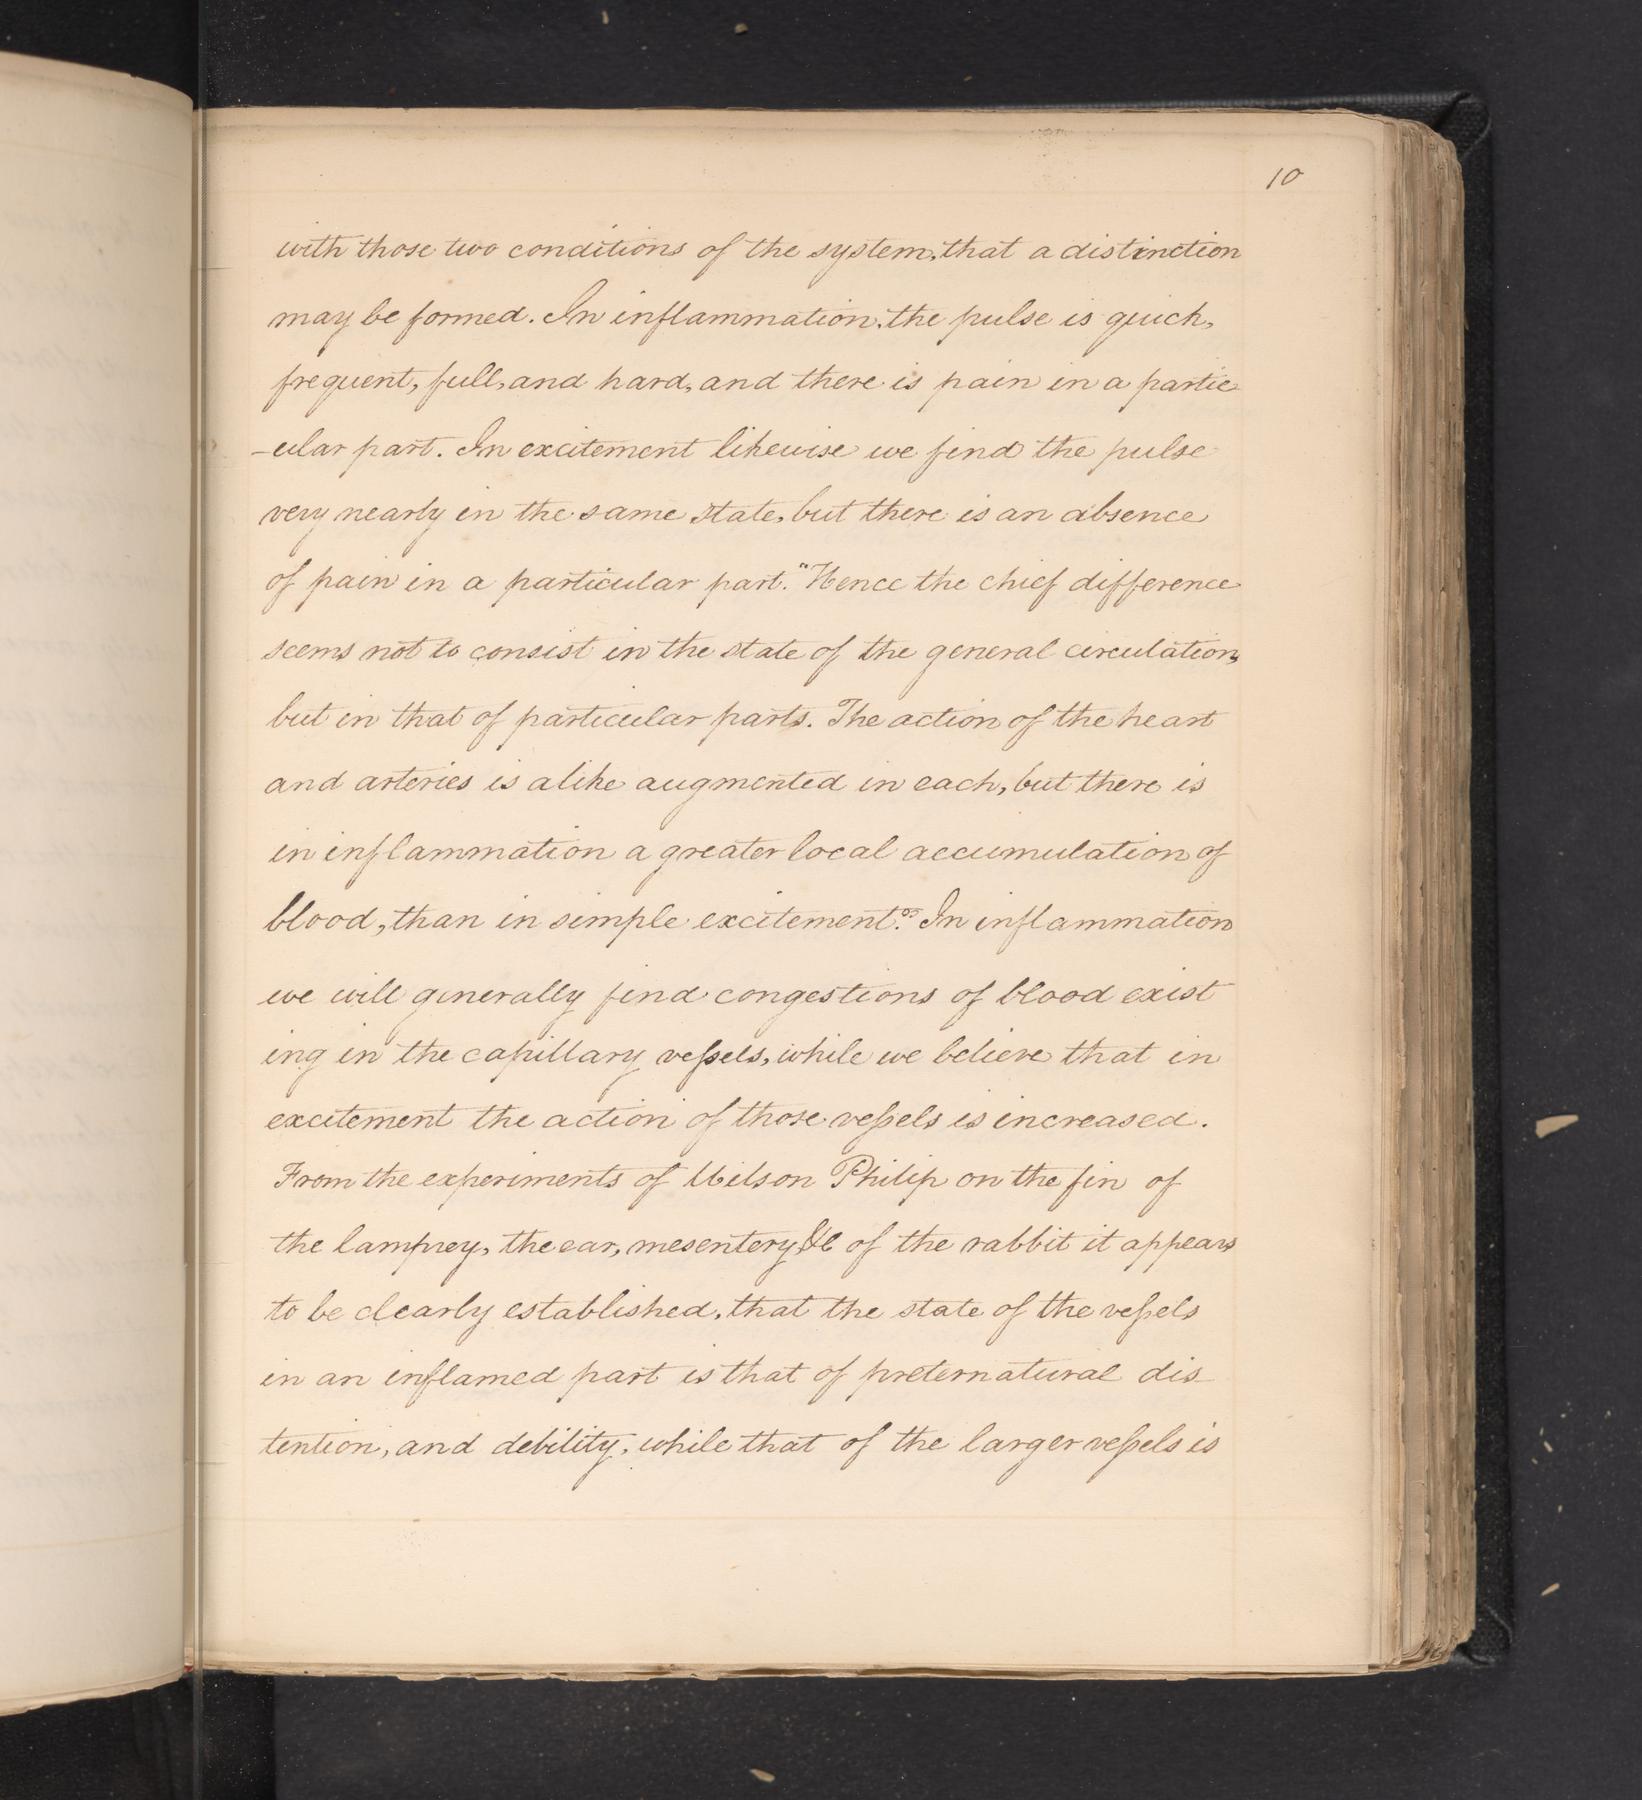 10
with those two conditions of the system, that a distinction
may be formed. In inflammation, the pulse is quick,
frequent, full, and hard, and there is pain in a partic
-ular part. In excitement likewise we find the pulse
very nearly in the same state, but there is an absence
of pain in a particular part. "Hence the chief difference
seems not to consist in the state of the general circulation,
but in that of particular parts. The action of the heart
and arteries is alike augmented in each, but there is
in inflammation a greater local accumulation of
blood, than in simple excitement." In inflammation
we will generally find congestions of blood exist
ing in the capillary vessels, while we believe that in
excitement the action of those vessels is increased.
From the experiments of Wilson Philip on the fin of
the lamprey, the ear, mesentery, &c of the rabbit it appears
to be clearly established, that the state of the vessels
in an inflamed part is that of preternatural dis-
tention, and debility, while that of the larger vessels is